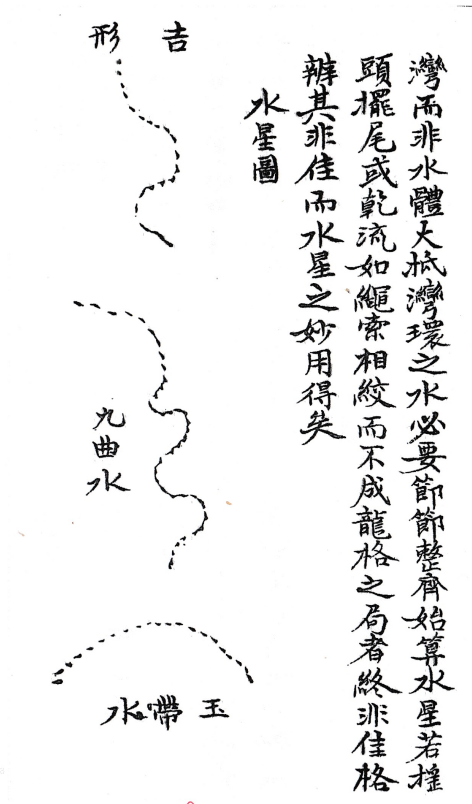 灣而非水體大抵灣環之水必要節節整齊始算水星若搖
頭擺尾或乾流如繩索相絞而不成龍格之局者終非佳格
辨其非佳而水星之妙用得矣
水星圖
吉形
九曲水
玉帶水